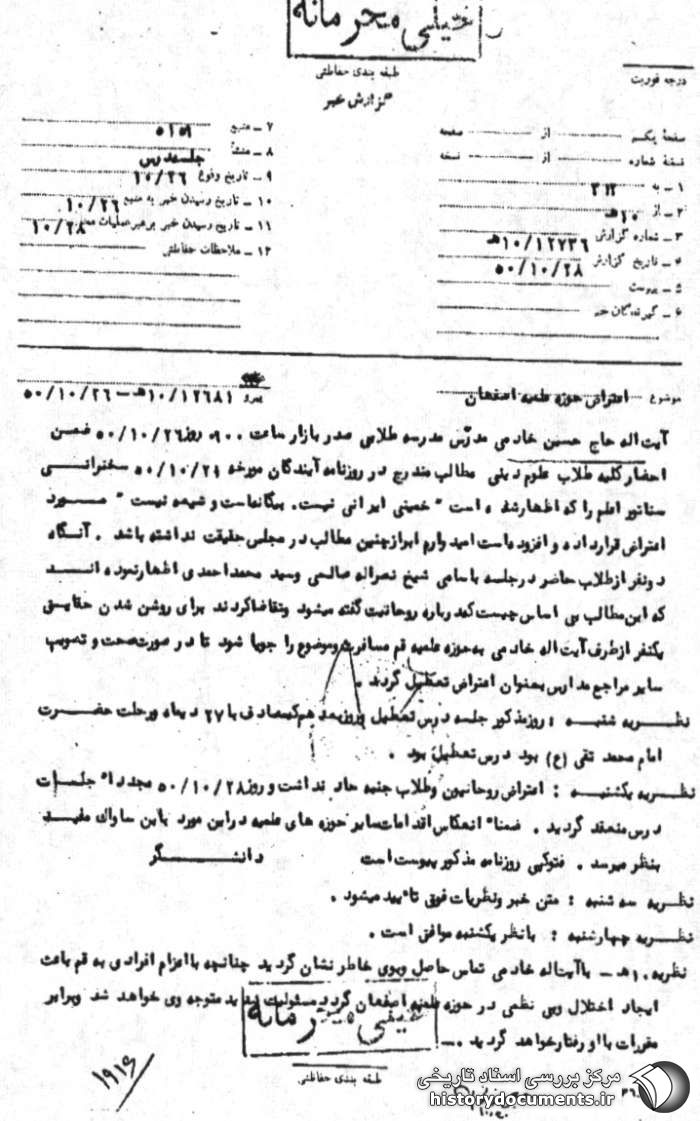 خیلی محرمانه
طبقه بندی حفاظتی
گزارش خبر
درجه فوریت
صفحهٔ یکم از صفحه
نسخهٔ شماره از نسخه
۱ ـ به ۳۱۲
۲ ـ از ۱۰هـ
۳ ـ شماره گزارش ۱۰/۱۲۷۳۶هـ
۴ ـ تاریخ گزارش ۵۰/۱۰/۲۸
۵ ـ پیوست
۶ ـ گیرندگان خبر
۷ ـ منبع ۵۱۵۹
۸ ـ منشأ جلسه درس
۹ ـ تاریخ وقوع ۱۰/۲۶
۱۰ ـ تاریخ رسیدن خبر به منبع ۱۰/۲۶
۱۱ ـ تاریخ رسیدن خبر برهبر عملیات ۱۰/۲۸
۱۲ ـ ملاحظات حفاظتی
موضوع اعتراض حوزه علمیه اصفهان
پیرو ۱۰/۱۲۶۸۱هـ ـ ۵۰/۱۰/۲۶
آیت اله حاج حسین خادمی مدرّس مدرسه طلابی صدر بازار ساعت ۰۹۰۰ روز ۵۰/۱۰/۲۶ ضمن
احضار کلیه طلاب علوم دینی مطالب مندرج در روزنامه آیندگان مورخه ۵۰/۱۰/۲۱ سخنرانی
سناتور اعلم را که اظهار شده است " خمینی ایرانی نیست. بیگانه است و شیعه نیست " مورد
اعتراض قرار داده و افزوده است امیدوارم ابراز چنین مطالب در مجلس حقیقت نداشته باشد . آنگاه
دو نفر از طلاب حاضر در جلسه باسامی شیخ نصراله صالحی وسید محمد احمدی اظهار نموده انـد
که این مطالب بی اساس چیست که درباره روحانیت گفته میشود وتقاضا کردند برای روشن شدن حقایق
یکنفر از طرف آیت اله خادمی به حوزه علمیه قم مسافرت وموضوع را جویا شود تا در صورت صحت و تصویب
سایر مراجع مدارس بعنوان اعتراض تعطیل گردند .
نظـریه شنبـه : روز مذکور جلسه درس تعطیل وروز بعد هم که مصادف با ۲۷ دیماه ورحلت حضـرت
امام محمد تقی (ع) بود درس تعطیل بود .
نظریه یکشنبه : اعتراض روحانیون وطلاب جنبه حاد نداشت و روز ۵۰/۱۰/۲۸ مجدداً جلسات
درس منعقد گردید . ضمناً انعکاس اقدامات سایر حوزه های علمیه در این مورد باین ساواک مفیـد
بنظر میرسد . فتوکپی روزنامه مذکور پیوست است دانشـگر
نظریه سه شنبه : متن خبر ونظریات فوق تأیید میشود .
نظریه چهارشنبه : با نظر یکشنبه موافق است .
نظریه ۱۰هـ ـ با آیت اله خادمی تماس حاصل وبوی خاطر نشان گردید چنانچه با اعزام افرادی به قم باعث
ایجاد اختلال وبی نظمی در حوزه علمیه اصفهان گردد مسئولیت شدید متوجه وی خواهد شد وبرابر
مقررات با او رفتار خواهد گردید .ـ
خیلی محرمانه
طبقه بندی حفاظتی
۱۹۱۶
مرکز بررسی اسناد تاریخی
historydocuments.ir